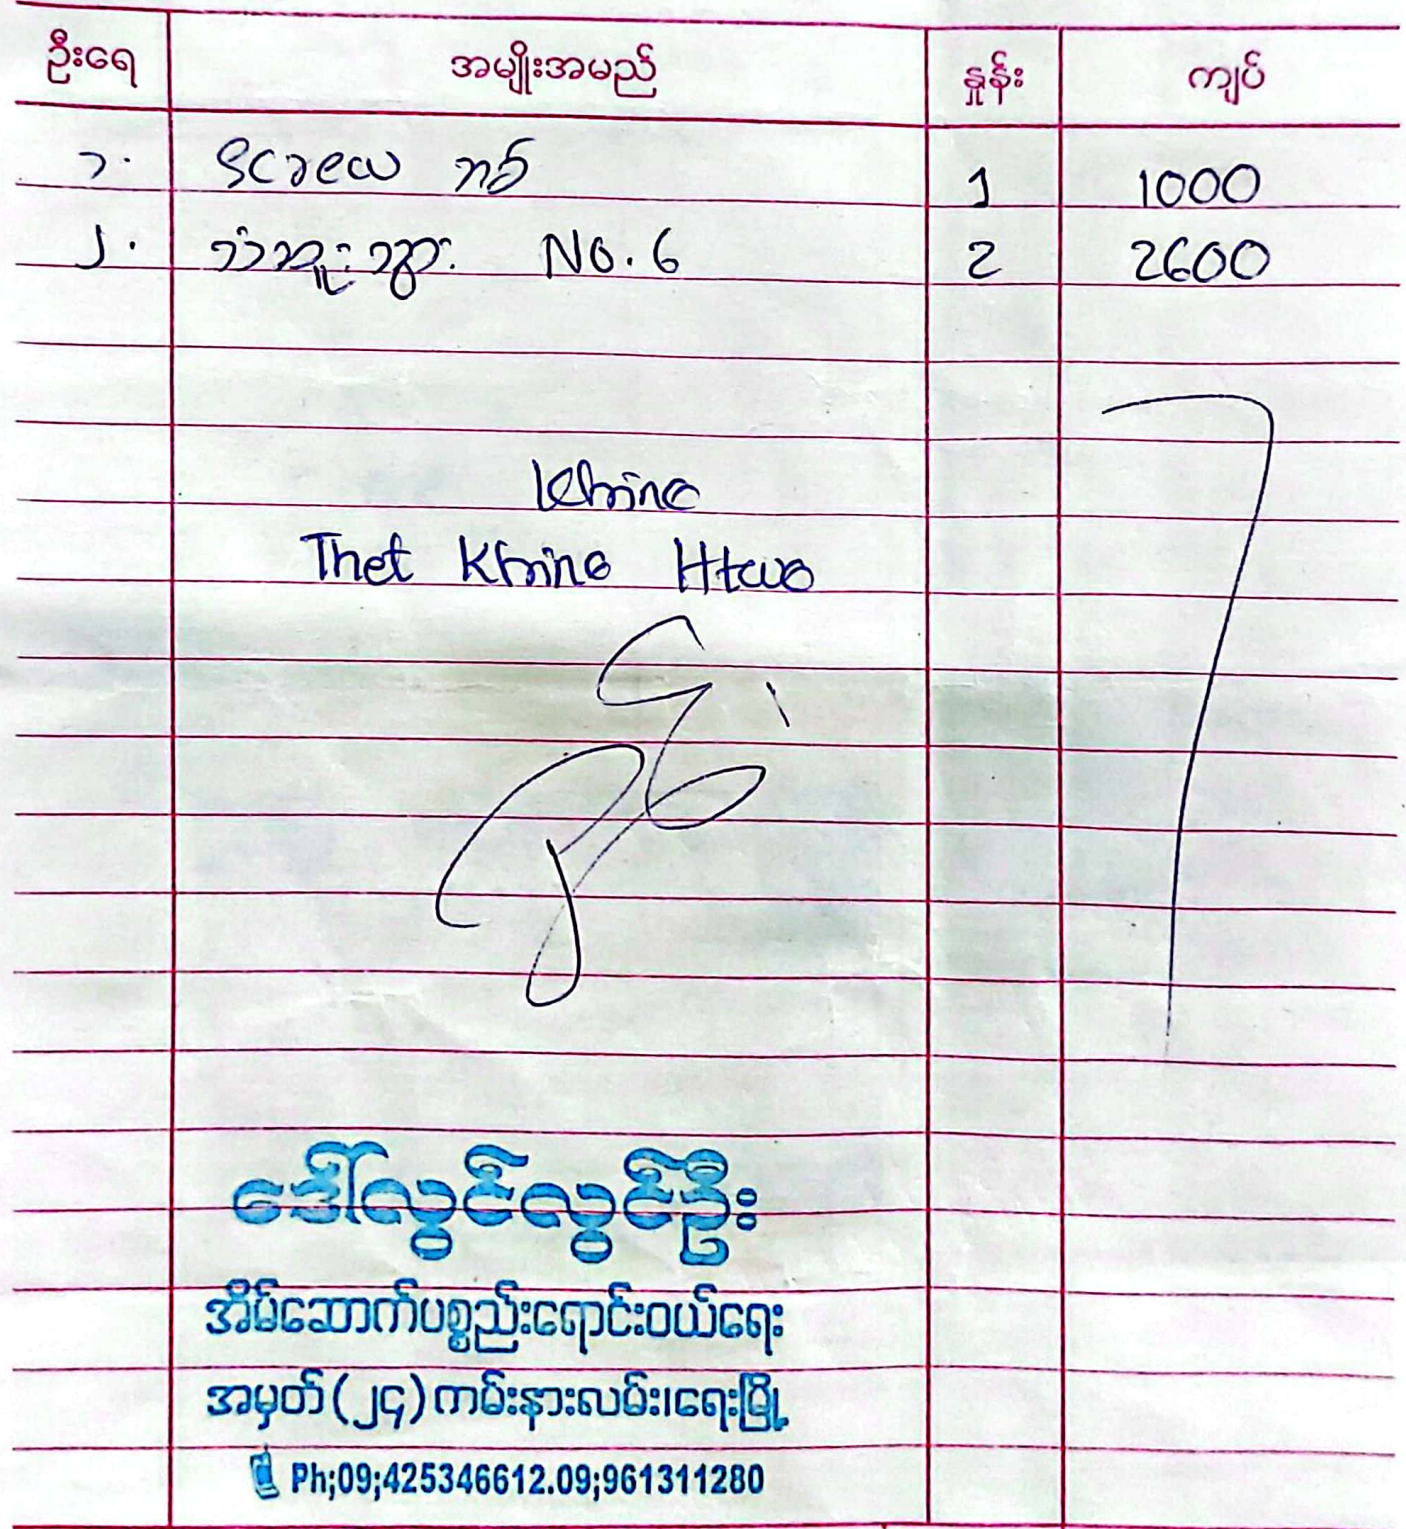 ဦးရေ အမျိုးအမည် နှုန်း ကျပ်
၁. screw 1 1000
၂. No. 6 2 2600
Khine
Thet Khine Htwe
ဒေါ်လွင်လွင်ဦး
အိမ်ဆောက်ပစ္စည်းရောင်းဝယ်ရေး
အမှတ်(၂၄)ကမ်းနားလမ်း၊ရေးမြို့
Ph;09;425346612.09;961311280